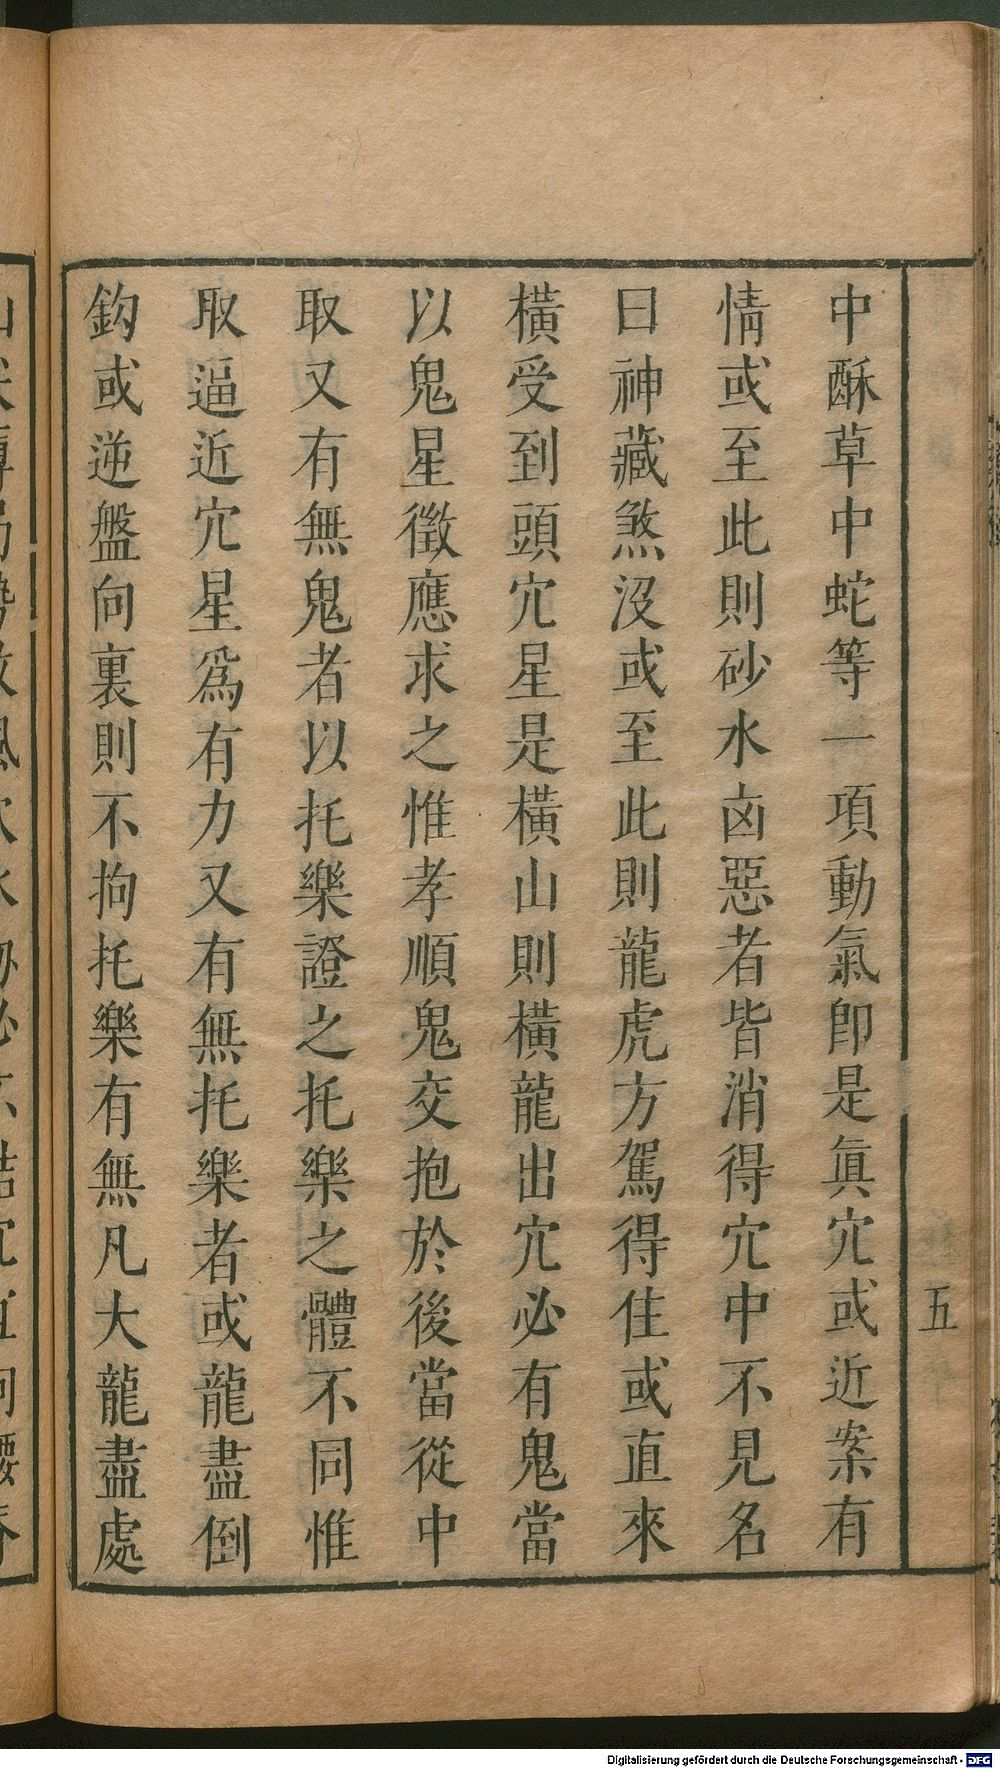 中酥草中蛇等一項動氣卽是眞穴或近案有
情或至此則砂水凶惡者皆消得穴中不見名
曰神藏煞沒或至此則龍虎方駕得住或直來
橫受到頭穴星是橫山則橫龍出穴必有鬼當
以鬼星徵應求之惟孝順鬼交抱於後當從中
取又有無鬼者以托樂證之托樂之體不同惟
取逼近穴星爲有力又有無托樂者或龍盡倒
鈎或逆盤向裏則不拘托樂有無凡大龍盡處
五
Digitalisierung gefördert durch die Deutsche Forschungsgemeinschaft - DFG